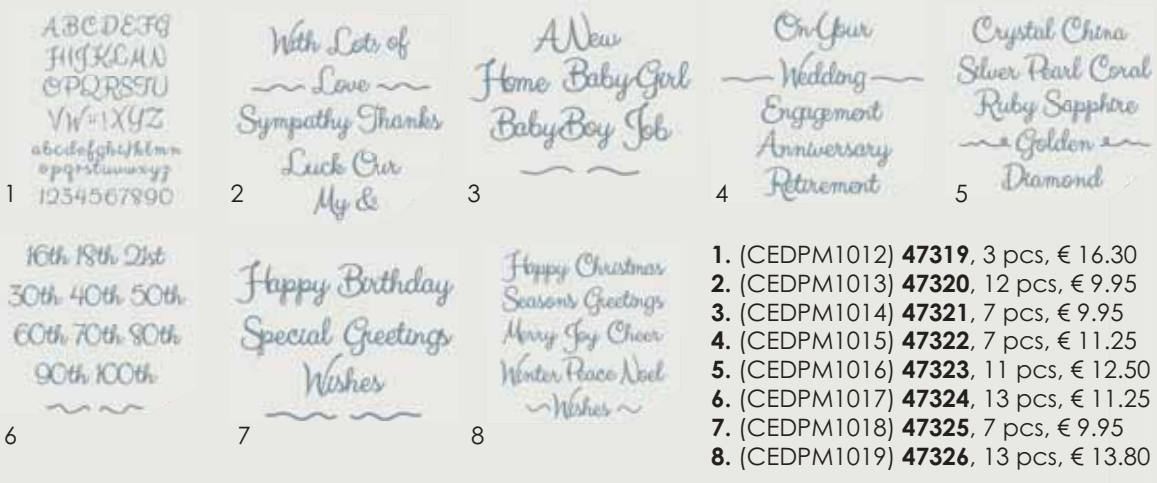 ABCDEFG
HIJKLMN
OPQRSTU
VW#!XYZ
abcdefghijklmn
opqrstuvwxyz
1234567890
1
With Lots of
Love
Sympathy Thanks
Luck Our
My &
2
A New
Home Baby Girl
Baby Boy Job
3
On Your
Wedding
Engagement
Anniversary
Retirement
4
Crystal China
Silver Pearl Coral
Ruby Sapphire
Golden
Diamond
5
16th 18th 21st
30th 40th 50th
60th 70th 80th
90th 100th
6
Happy Birthday
Special Greetings
Wishes
7
Happy Christmas
Seasons Greetings
Merry Joy Cheer
Winter Peace Noel
Wishes
8
1. (CEDPM1012) 47319, 3 pcs, € 16.30
2. (CEDPM1013) 47320, 12 pcs, € 9.95
3. (CEDPM1014) 47321, 7 pcs, € 9.95
4. (CEDPM1015) 47322, 7 pcs, € 11.25
5. (CEDPM1016) 47323, 11 pcs, € 12.50
6. (CEDPM1017) 47324, 13 pcs, € 11.25
7. (CEDPM1018) 47325, 7 pcs, € 9.95
8. (CEDPM1019) 47326, 13 pcs, € 13.80